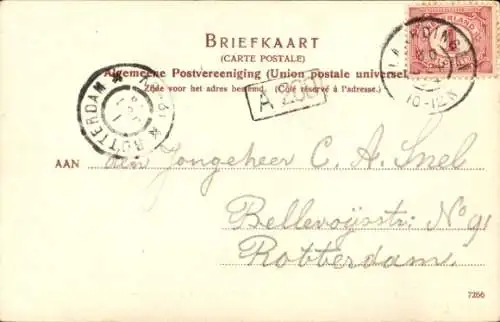 BRIEFKAART
(CARTE POSTALE)
Algemeene Postvereeniging (Union postale universelle)
Zijde voor het adres bestemd. (Côté réservé à l'adresse.)
A 200
ROTTERDAM
10-12
AAN den Jongeheer C. A. Snel
Bellevoijsstr. No 91
Rotterdam.
7266